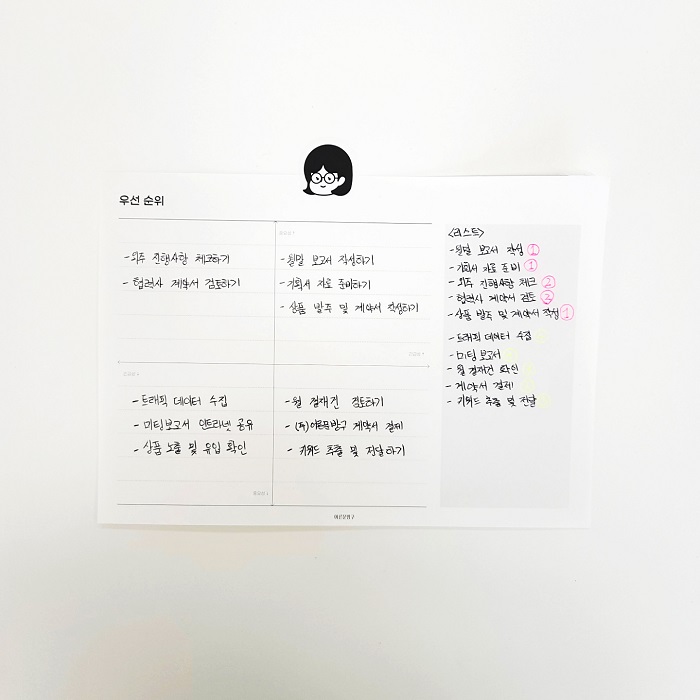 우선 순위
- 외주 진행사항 체크하기
- 협력사 계약서 검토하기
중요성↑
- 월말 보고서 작성하기
- 기획서 자료 준비하기
- 상품 발주 및 계약서 작성하기
- 트래픽 데이터 수집
- 미팅보고서 인트라넷 공유
- 상품 노출 및 유입 확인
중요성↓
- 월 결재건 검토하기
- (주)어른문방구 계약서 결제
- 키워드 추출 및 전달하기
<리스트>
- 월말 보고서 작성 ①
- 기획서 자료 준비 ①
- 외주 진행사항 체크 ②
- 협력사 계약서 검토 ②
- 상품 발주 및 계약서 작성 ①
- 트래픽 데이터 수집
- 미팅 보고서
- 월 결재건 확인
- 계약서 결제
- 키워드 추출 및 전달
어른문방구